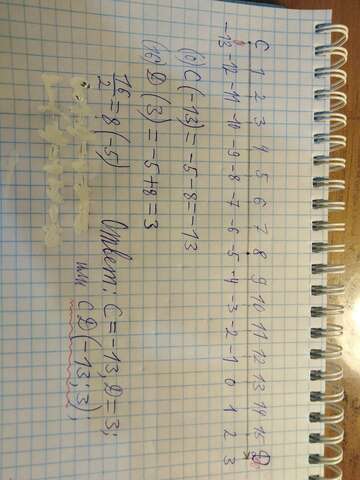 C 1 2 3 4 5 6 7 8 9 10 11 12 13 14 15 D
-13 -12 -11 -10 -9 -8 -7 -6 -5 -4 -3 -2 -1 0 1 2 3
C(-13)=-5-8=-13
D (3)=-5+8=3
16/2=8 (-5)
Ответ: C=-13, D=3;
или CD(-13; 3);